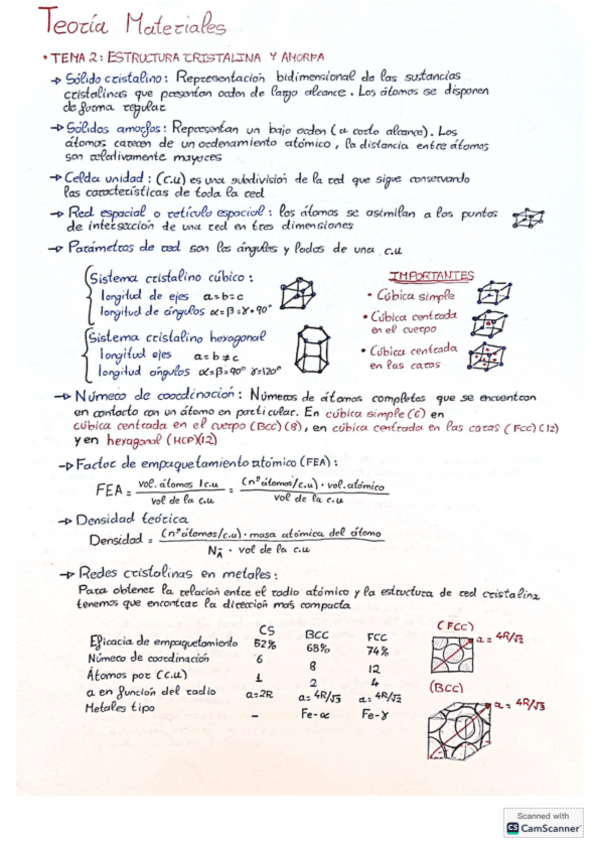 Teoría Materiales
• TEMA 2: ESTRUCTURA CRISTALINA Y AMORFA
→ Sólido cristalino: Representación bidimensional de las sustancias
cristalinas que presentan orden de largo alcance. Los átomos se disponen
de forma regular
→ Sólidos amorfos: Representan un bajo orden (a corto alcance). Los
átomos carecen de un ordenamiento atómico, la distancia entre átomos
son relativamente mayores
→ Celda unidad: (c.u) es una subdivisión de la red que sigue conservando
las características de toda la red
→ Red espacial o retículo espacial: los átomos se asimilan a los puntos
de intersección de una red en tres dimensiones
→ Parámetros de red son los ángulos y lados de una c.u
Sistema cristalino cúbico:
longitud de ejes a=b=c
longitud de ángulos α=β=γ=90°
Sistema cristalino hexagonal
longitud ejes a=b≠c
longitud angulos α=β=90° γ=120°
IMPORTANTES
• Cúbica simple
• Cúbica centrada
en el cuerpo
• Cúbica centrada
en las caras
→ Número de coordinación: Números de átomos completos que se encuentran
en contacto con un átomo en particular. En cúbica simple (6) en
cúbica centrada en el cuerpo (BCC) (8), en cúbica centrada en las caras (FCC) (12)
y en hexagonal (HCP)(12)
→ Factor de empaquetamiento atómico (FEA):
FEA = vol. átomos 1c.u / vol de la c.u = (nº átomos/c.u) · vol. atómico / vol de la c.u
→ Densidad teórica
Densidad = (nº átomos/c.u) · masa atómica del átomo / NA · vol de la c.u
→ Redes cristalinas en metales:
Para obtener la relación entre el radio atómico y la estructura de red cristalina
tenemos que encontrar la dirección mas compacta
CS BCC FCC
Eficacia de empaquetamiento 52% 68% 74%
Número de coordinación 6 8 12
Átomos por (c.u) 1 2 4
a en función del radio a=2R a=4R/√3 a=4R/√2
Metales tipo – Fe-α Fe-γ
(FCC)
a = 4R/√2
(BCC)
a = 4R/√3
Scanned with
CS CamScanner